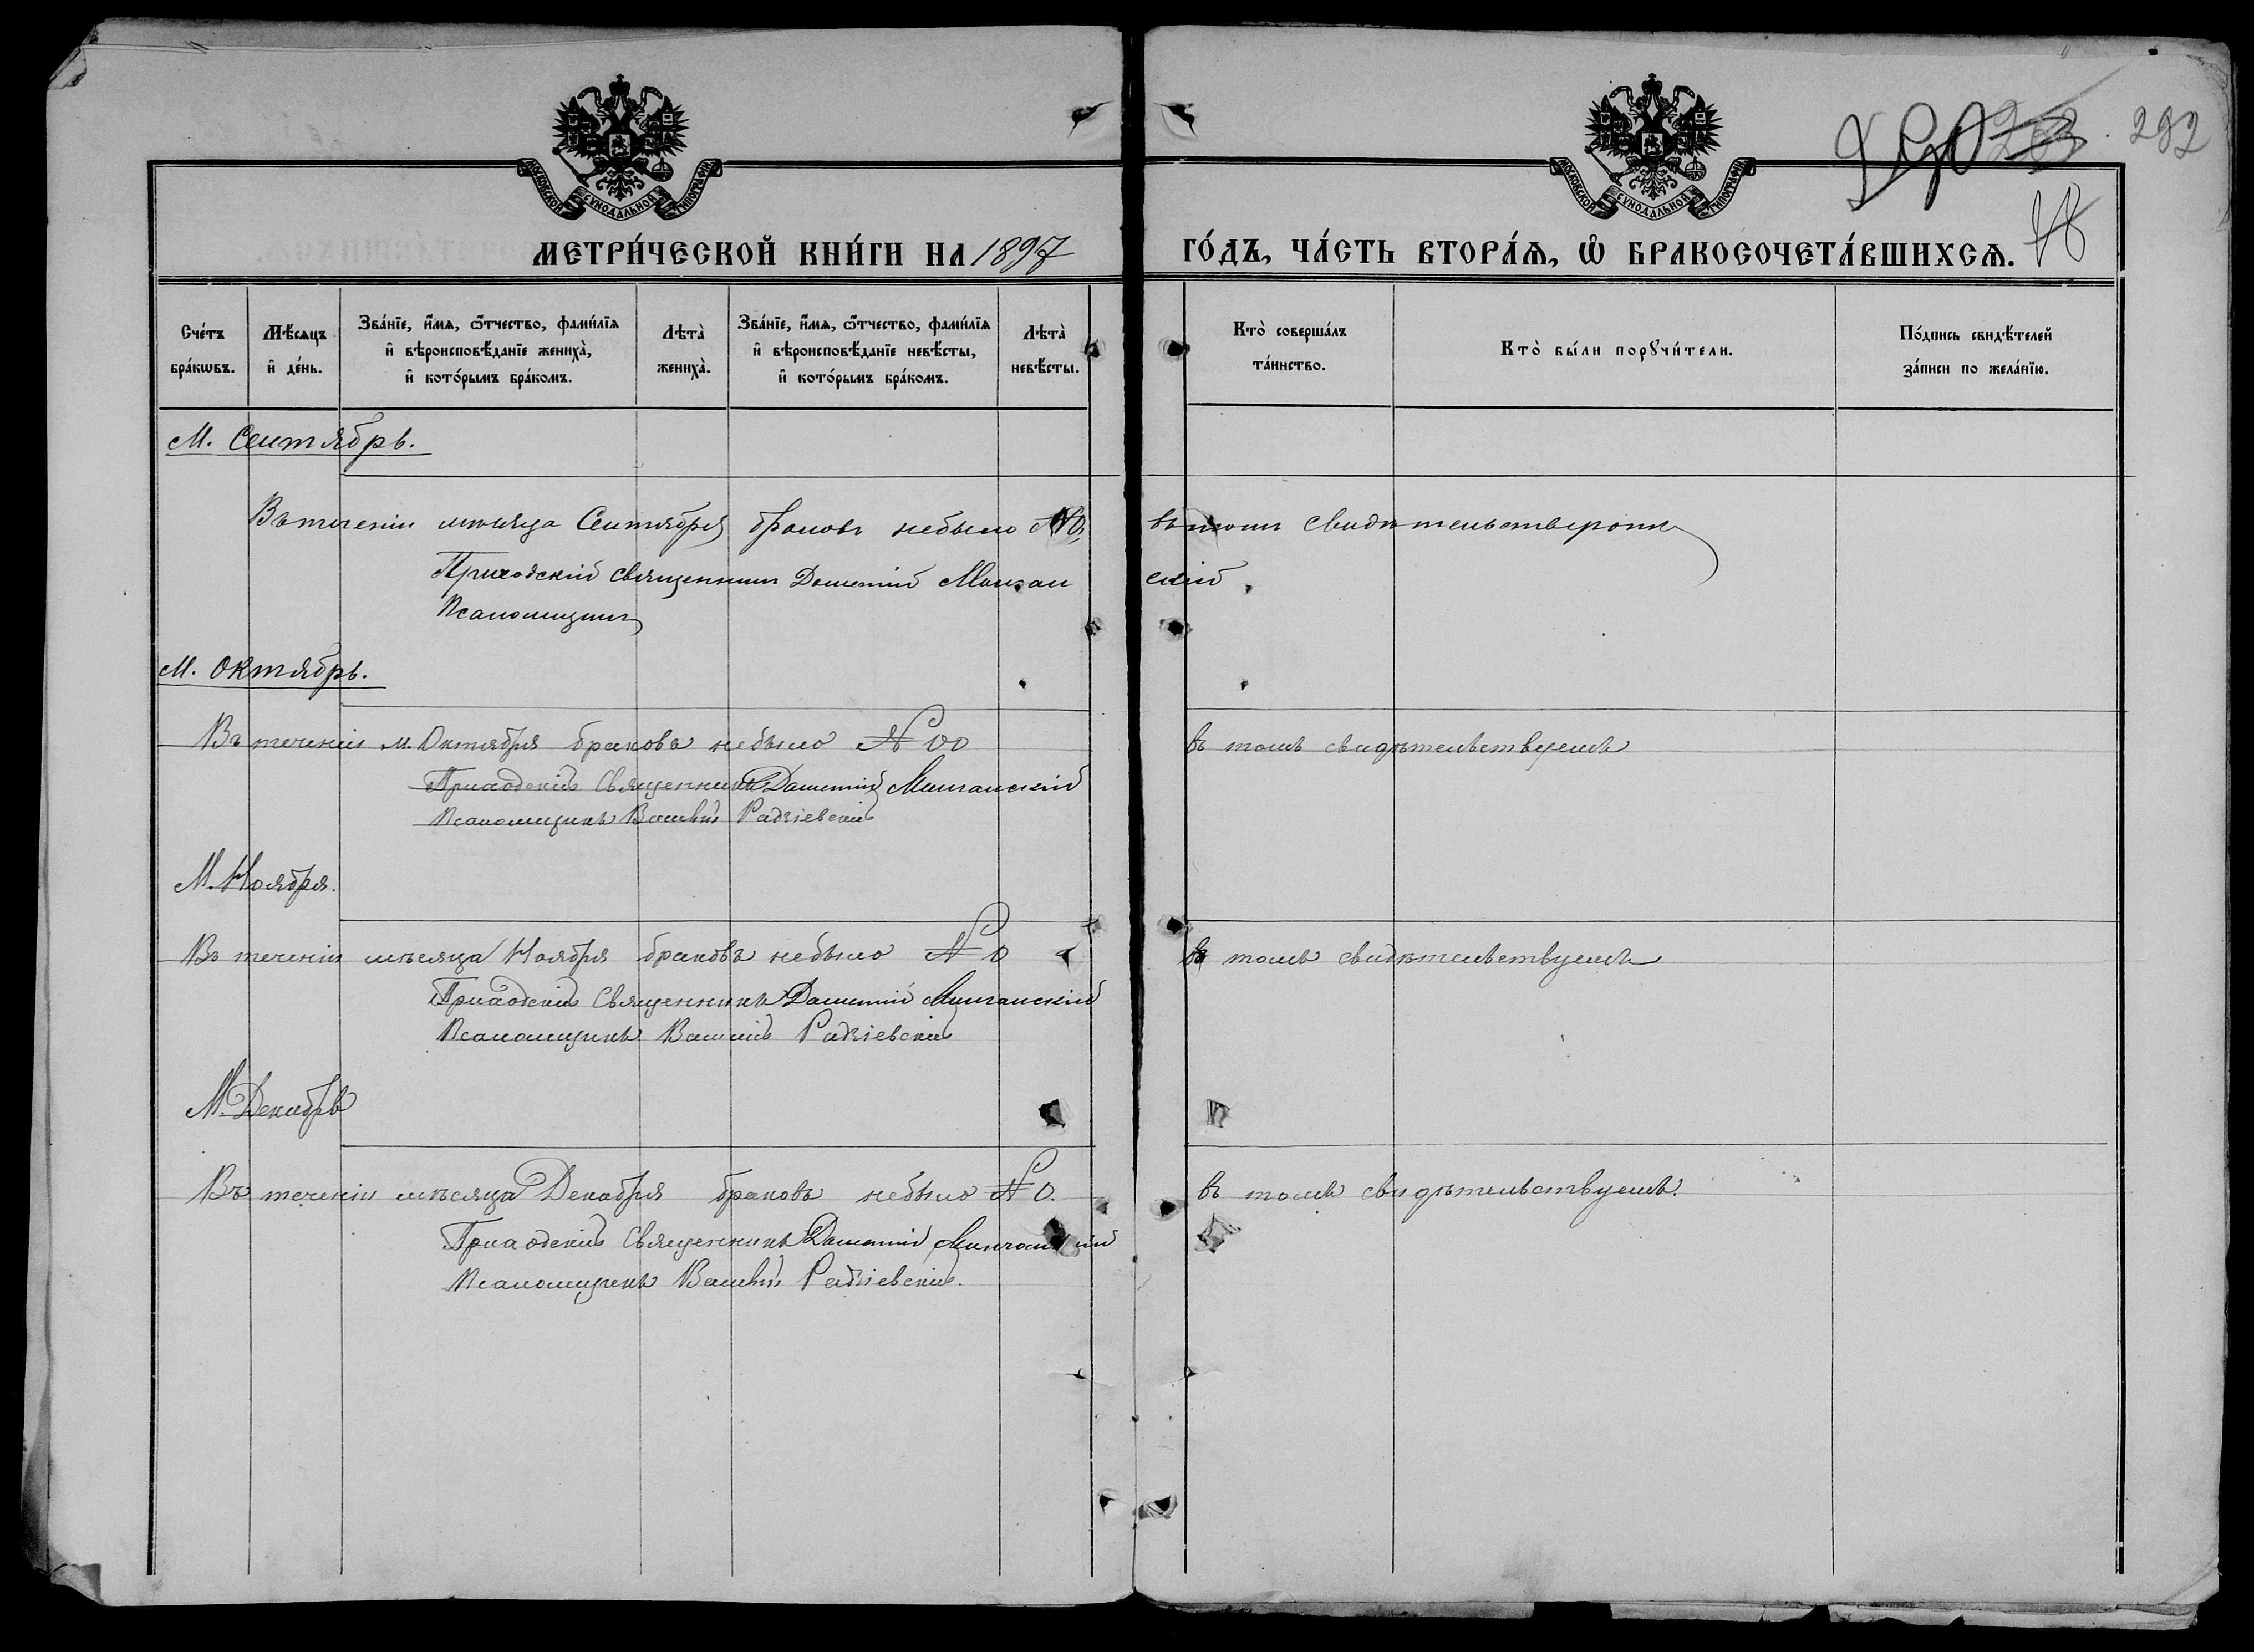 МОСКОВСКОЙ СѴНОДАЛЬНОЙ ТИПОГРАФІИ
МОСКОВСКОЙ СѴНОДАЛЬНОЙ ТИПОГРАФІИ
292
18
МЕТРИ́ЧЕСКОЙ КНИ́ГИ НА 1897 ГО́ДЪ, ЧА́СТЬ ВТОРА́Ѧ, Ѽ БРАКОСОЧЕТА́ВШИХСѦ.
Сче́тъ бра́кѡвъ.
Мѣ́сѧцъ и҆ де́нь.
Зва́нїе, и҆́мѧ, ѻ҆́тчество, фами́лїѧ и҆ вѣроисповѣ́данїе жениха̀, и҆ кото́рымъ бра́комъ.
Лѣта̀ жениха̀.
Зва́нїе, и҆́мѧ, ѻ҆́тчество, фами́лїѧ и҆ вѣроисповѣ́данїе невѣ́сты, и҆ кото́рымъ бра́комъ.
Лѣта̀ невѣ́сты.
Кто̀ соверша́лъ та́инство.
Кто̀ бы́ли порꙋчи́тели.
По́дпись свидѣ́телей за́писи по жела́нїю.
М. Сентябрь.
Въ теченіи мѣсяца Сентября браковъ небыло №0, въ томъ
Приходскій священникъ Дометій
Псаломщикъ
М. Октябрь.
Въ теченіи м. Октября браковъ небыло № 00 въ томъ свидѣтельствуемъ
Приходскій Священникъ Дометій
Псаломщикъ Радзіевскій
М. Ноября.
Въ теченіи мѣсяца Ноября браковъ небыло № 0 въ томъ свидѣтельствуемъ
Приходскій Священникъ Дометій
Псаломщикъ Радзіевскій
М. Декабрь
Въ теченіи мѣсяца Декабря браковъ небыло № 0. въ томъ свидѣтельствуемъ.
Приходскій Священникъ Дометій
Псаломщикъ Радзіевскій.